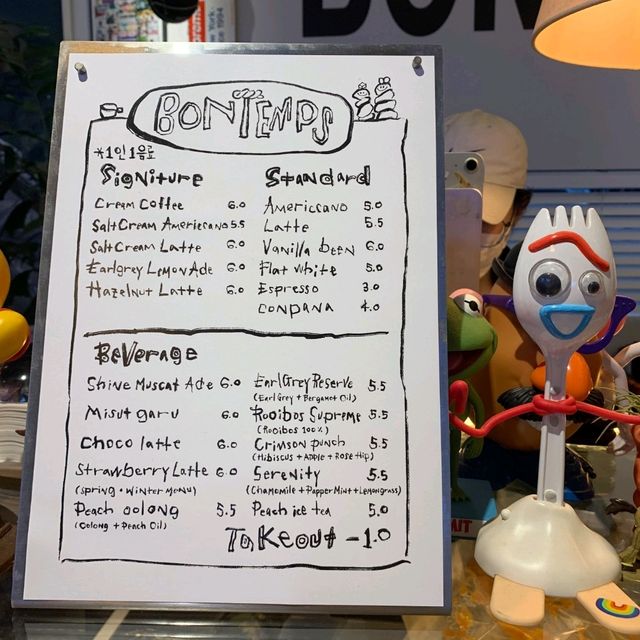 BON
BONTEMPS
*1인1음료
Signiture
Cream Coffee 6.0
SaltCream Americcano 5.5
SaltCream Latte 6.0
Earlgrey LemonAde 6.0
Hazelnut Latte 6.0
Standard
Americcano 5.0
Latte 5.5
Vanilla been 6.0
Flat white 5.0
Espresso 3.0
conpana 4.0
Beverage
Shine Muscat Ade 6.0
Misut garu 6.0
Choco latte 6.0
Strawberry Latte 6.0
(Spring • Winter Menu)
Peach oolong 5.5
(Oolong + Peach Oil)
EarlGrey Reserve 5.5
(Earl Grey + Bergamot Oil)
Rooibos Supreme 5.5
(Rooibos 100%)
Crimson punch 5.5
(Hibiscus + Apple + Rose Hip)
Serenity 5.5
(Chamomile + PapperMint + Lemongrass)
Peach ice tea 5.0
Takeout -1.0